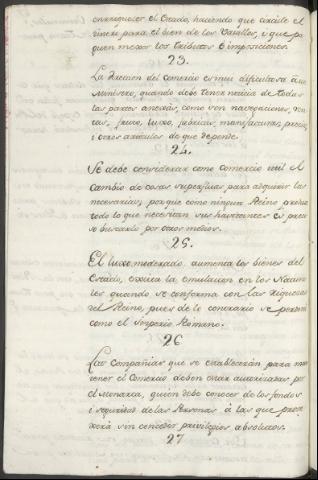 enriquecer el Estado, haciendo que circule el
dinero para el bien de los Vasallos, i que pa
guen mejor los tributos è imposiciones.
23.
La direccion del comercio es mui dificultosa à un
Ministro, quando debe tener noticia de todas
las partes anexas, como son navegaciones, ven
tas, luxo, fabricas, manufacturas, precios,
i otros articulos de que depende.
24.
Se debe considerar como comercio util el
cambio de cosas superfluas para adquirir las
necesarias, porque como ningun Reino produce
todo lo que necesitan sus havitantes es preci
so buscarlo por otros medios.
25.
El luxo moderado aumenta los bienes del
Estado, excita la emulacion en los Nacion
les quando se conforma con las riquezas
del Reino, pues de lo contrario se perderà
como el Imperio Romano.
26
Las compañias que se estableceràn para man
tener el Comercio deben estar autorizadas por
el Monarca, quien debe conocer de los fondos
i seguridad de las Personas à las que prote
xerà sin conceder privilegios absolutos.
27